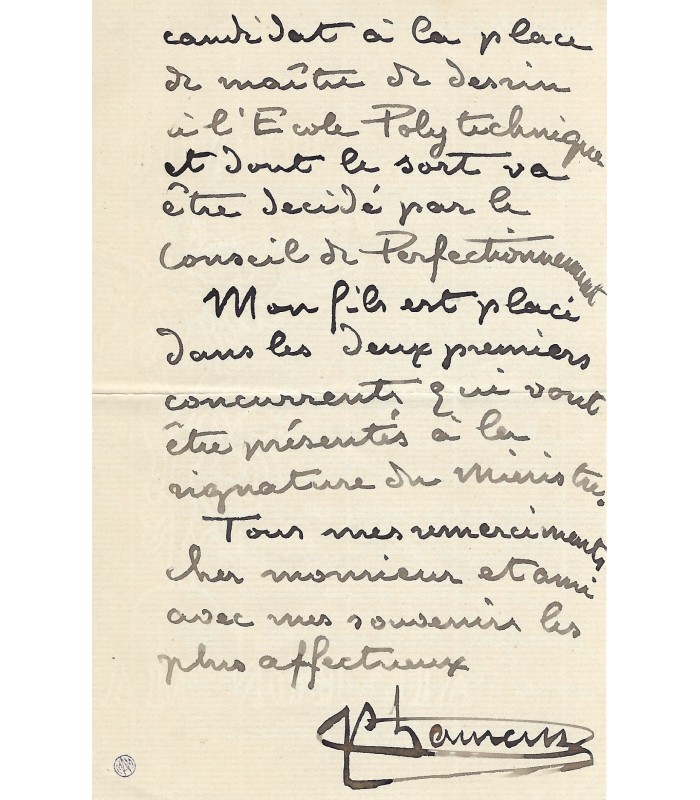 candidat à la place
de maître de dessin
à l'Ecole Polytechnique
et dont le sort va
être decidé par le
Conseil de Perfectionnement
Mon fils est placé
dans les deux premiers
concurrents qui vont
être présentés à la
signature du Ministre.
Tous mes remerciments
cher monsieur et ami
avec mes souvenirs les
plus affectueux